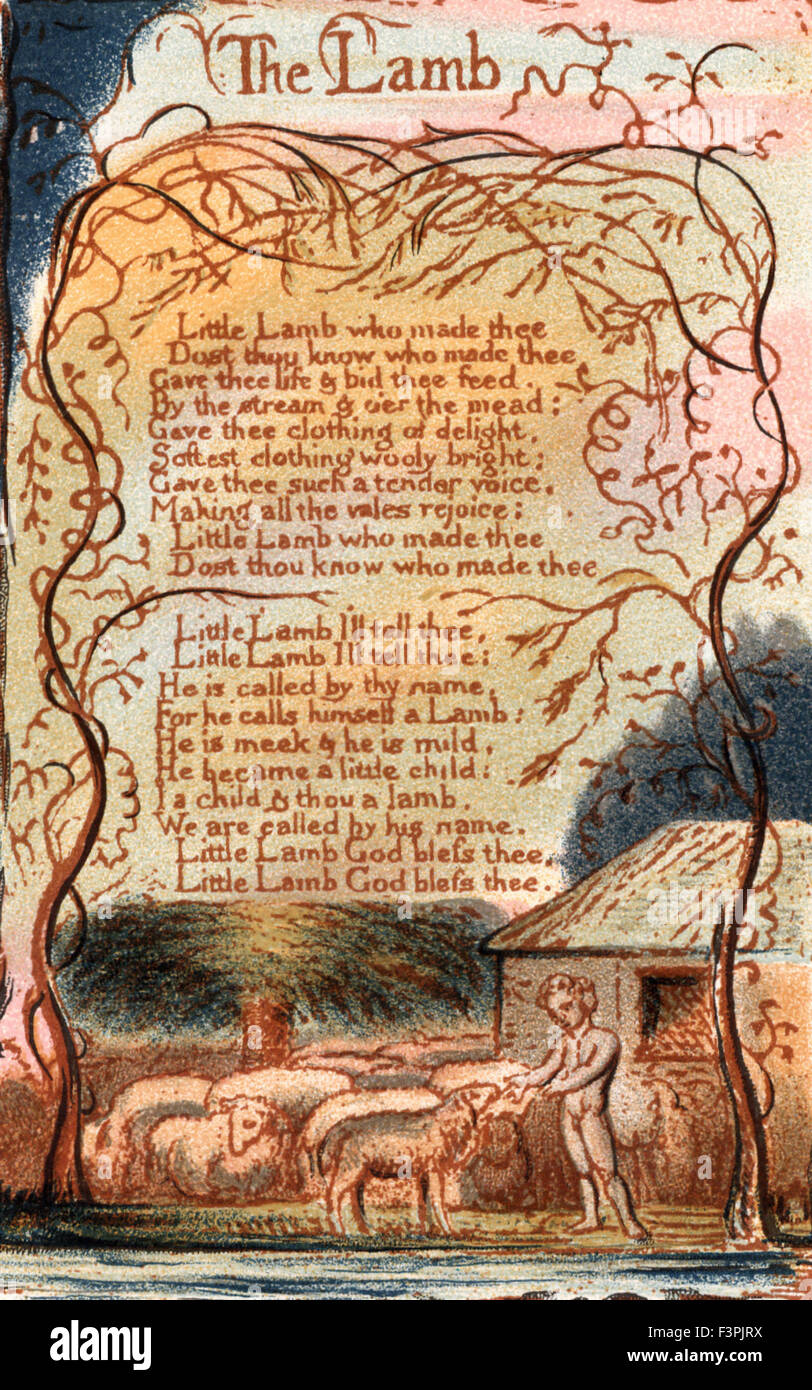 The Lamb
Little Lamb who made thee
Dost thou know who made thee
Gave thee life & bid thee feed.
By the stream & o'er the mead;
Gave thee clothing of delight,
Softest clothing wooly bright;
Gave thee such a tender voice,
Making all the vales rejoice;
Little Lamb who made thee
Dost thou know who made thee
Little Lamb I'll tell thee,
Little Lamb I'll tell thee;
He is called by thy name,
For he calls himself a Lamb:
He is meek & he is mild,
He became a little child:
I a child & thou a lamb,
We are called by his name.
Little Lamb God bleſs thee,
Little Lamb God bleſs thee.
a
alamy stock photo
F3PJRX
www.alamy.com